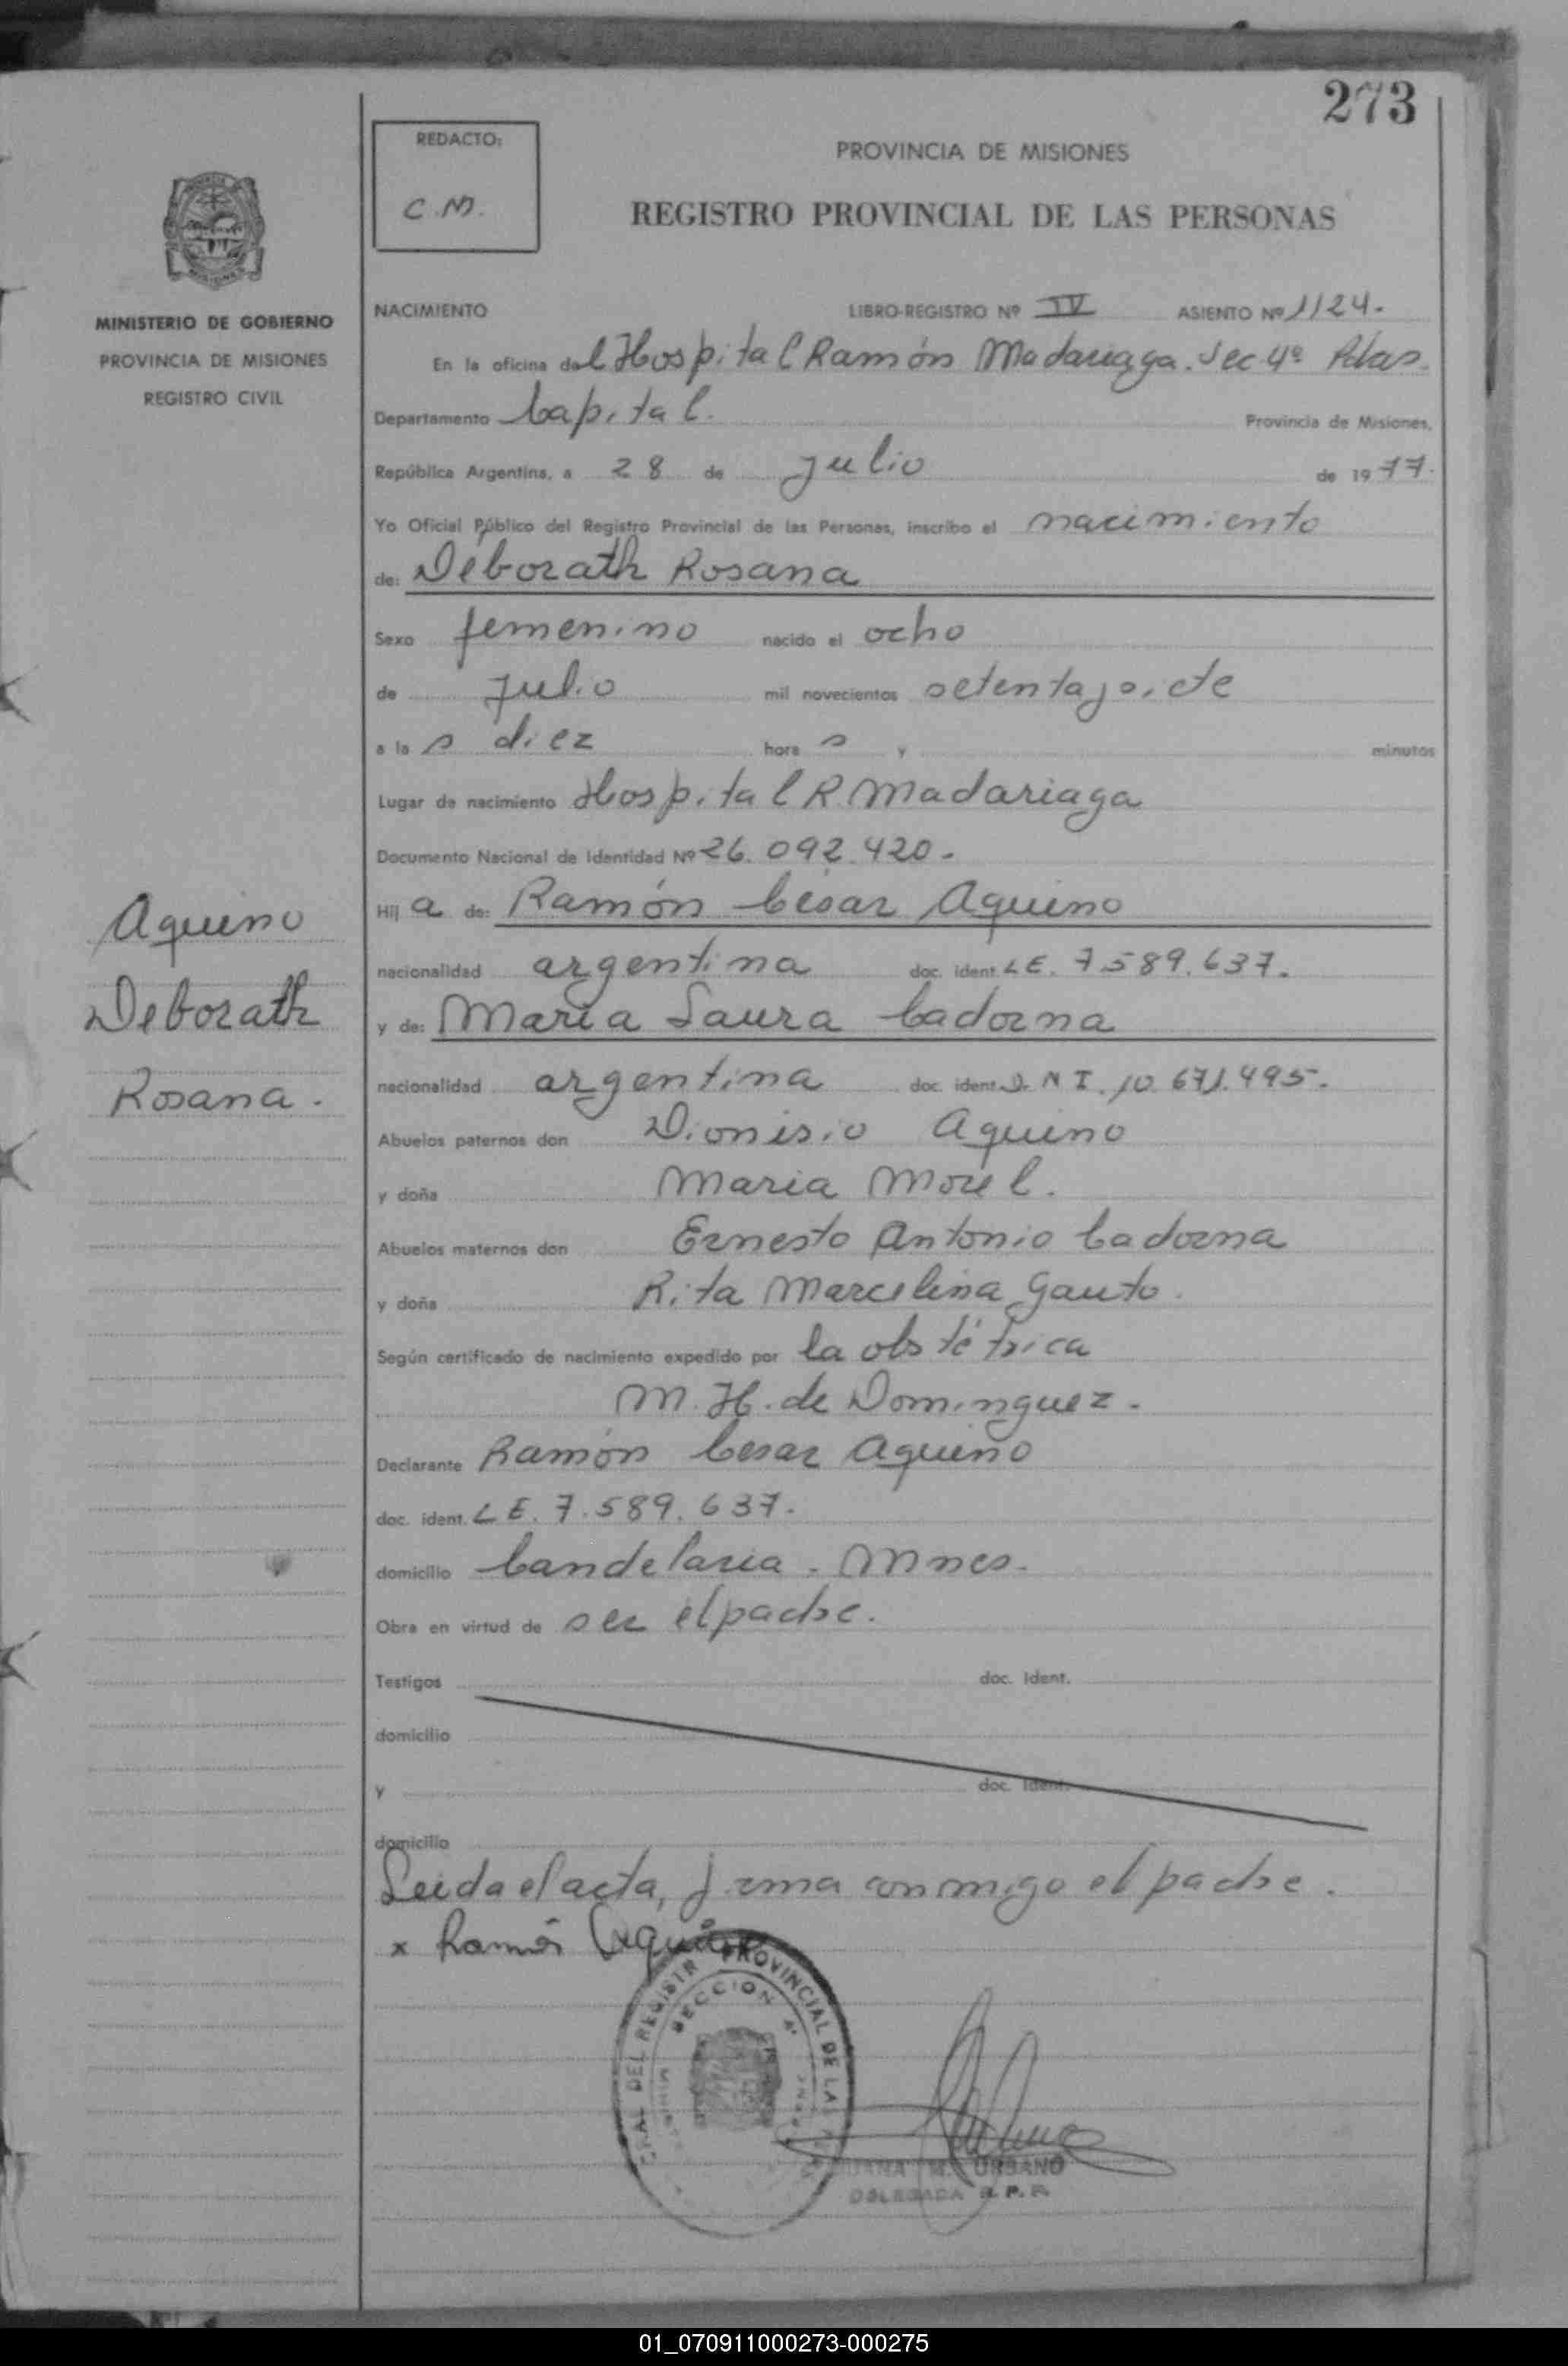 273
REDACTO:
C.M.
PROVINCIA DE MISIONES
REGISTRO PROVINCIAL DE LAS PERSONAS
MINISTERIO DE GOBIERNO
PROVINCIA DE MISIONES
REGISTRO CIVIL
NACIMIENTO LIBRO-REGISTRO Nº IV ASIENTO Nº 1124.-
En la oficina del Hospital Ramón Madariaga. Sec 4º Pdas.
Departamento Capital. Provincia de Misiones,
República Argentina, a 28 de Julio de 1977.
Yo Oficial Público del Registro Provincial de las Personas, inscribo el nacimiento
de: Deborath Rosana
Sexo femenino nacido el ocho
de Julio mil novecientos setentaysiete
a la s diez hora s y minutos
Lugar de nacimiento Hospital R. Madariaga
Documento Nacional de Identidad Nº 26.092.420.-
Hij a de: Ramón César Aquino
nacionalidad argentina doc. ident. L E. 7.589.637.
y de: María Laura Cadorna
nacionalidad argentina doc. ident. D. N I. 10.671.495.
Abuelos paternos don Dionisio Aquino
y doña Maria Morel.
Abuelos maternos don Ernesto Antonio Cadorna
y doña Rita Marcelina Gauto.
Según certificado de nacimiento expedido por la obstétrica
M. H. de Dominguez.-
Declarante Ramón Cesar Aquino
doc. ident. L E. 7.589.637.-
domicilio Candelaria - Mnes.
Obra en virtud de ser el padre.
Testigos doc. Ident.
domicilio
y doc. Ident.
domicilio
Leida el acta, firma conmigo el padre.
x Ramón Aquino
Aquino
Deborath
Rosana.
DEL REGISTR PROVINCIAL DE LA
SECCION 4ª
JUANA M. URBANO
DELEGADA R. P. P.
01_070911000273-000275